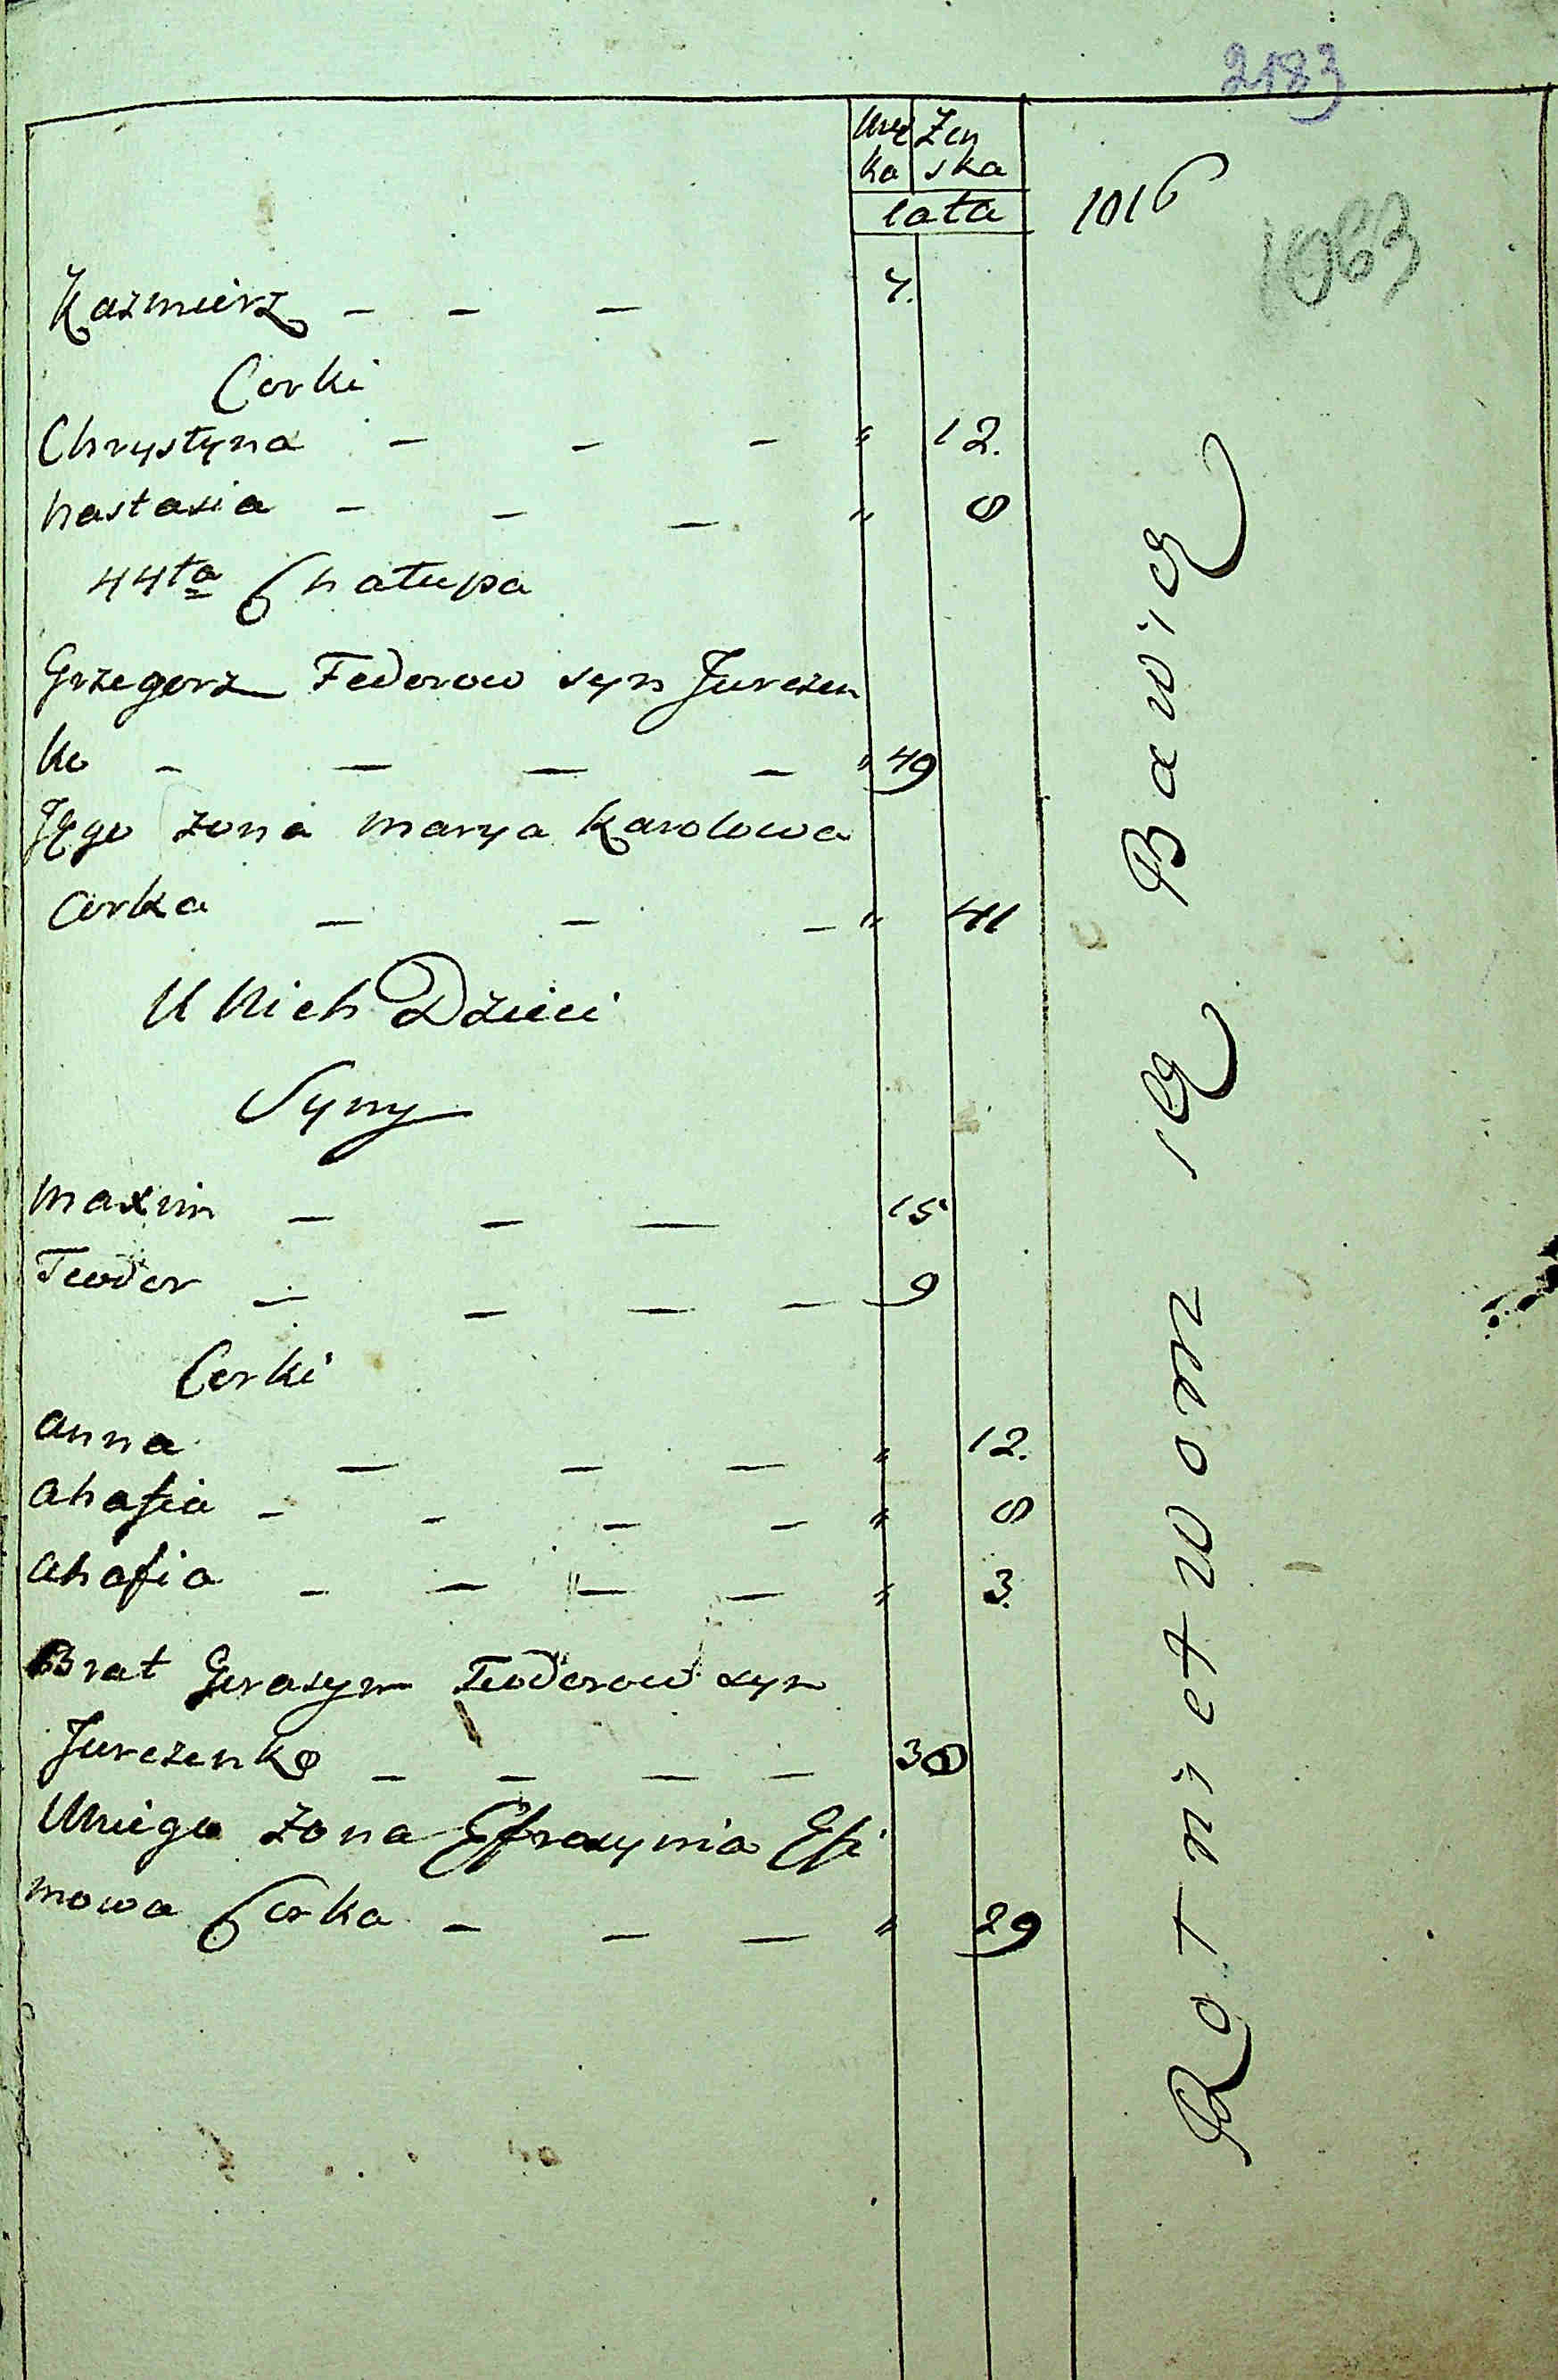 2183
Męz Zen
ka ska
lata
1016
1063
Kazmierz — — — 7.
Corki
Chrystyna — — — " 12.
Nastasia — — — " 8
44ta Chałupa
Grzegorz Fedorow syn Jurczen
ko — — — — " 49
Jego zona Marya Karolowa
Corka — — — " 41
U Nich Dzieci
Syny
Maxim — — — 15
Teodor — — — — 9
Corki
Anna — — — " 12.
Ahafia — — — — " 8
Ahafia — — — — " 3.
Brat Gerasym Teodorow syn
Jurczenko — — — — 30
U niego Zona Efrosynia Efi
mowa Corka — — — " 29
Rolnictwom ię Bawią